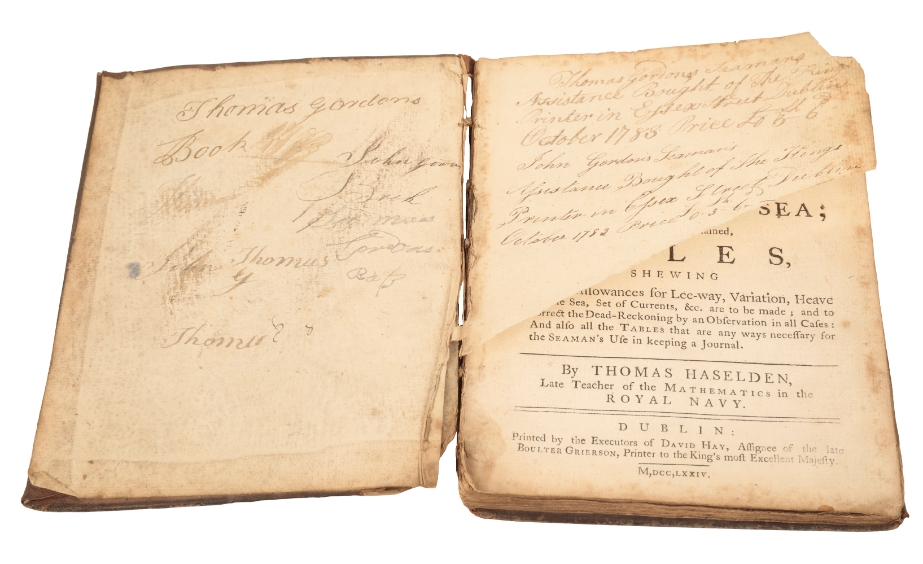 Thomas Gordons
Book
John
Book
Thomas
Gordons
John Thomas
G
Thomas
Thomas Gordons Seamans
Assistance Bought of The Kings
Printer in Essex Street Dublin
October 1783 Price £0 5 6
John Gordons Seamans
Assistance Bought of The Kings
Printer in Essex Street Dublin
October 1782 Price 0 5 6
SEA;
ained,
LES,
SHEWING
Allowances for Lee-way, Variation, Heave
e Sea, Set of Currents, &c. are to be made; and to
orrect the Dead-Reckoning by an Obſervation in all Caſes:
And alſo all the TABLES that are any ways neceſſary for
the SEAMAN'S Uſe in keeping a Journal.
By THOMAS HASELDEN,
Late Teacher of the MATHEMATICS in the
ROYAL NAVY.
DUBLIN:
Printed by the Executors of DAVID HAY, Aſſignee of the late
BOULTER GRIERSON, Printer to the King's moſt Excellent Majeſty.
M,DCC,LXXIV.